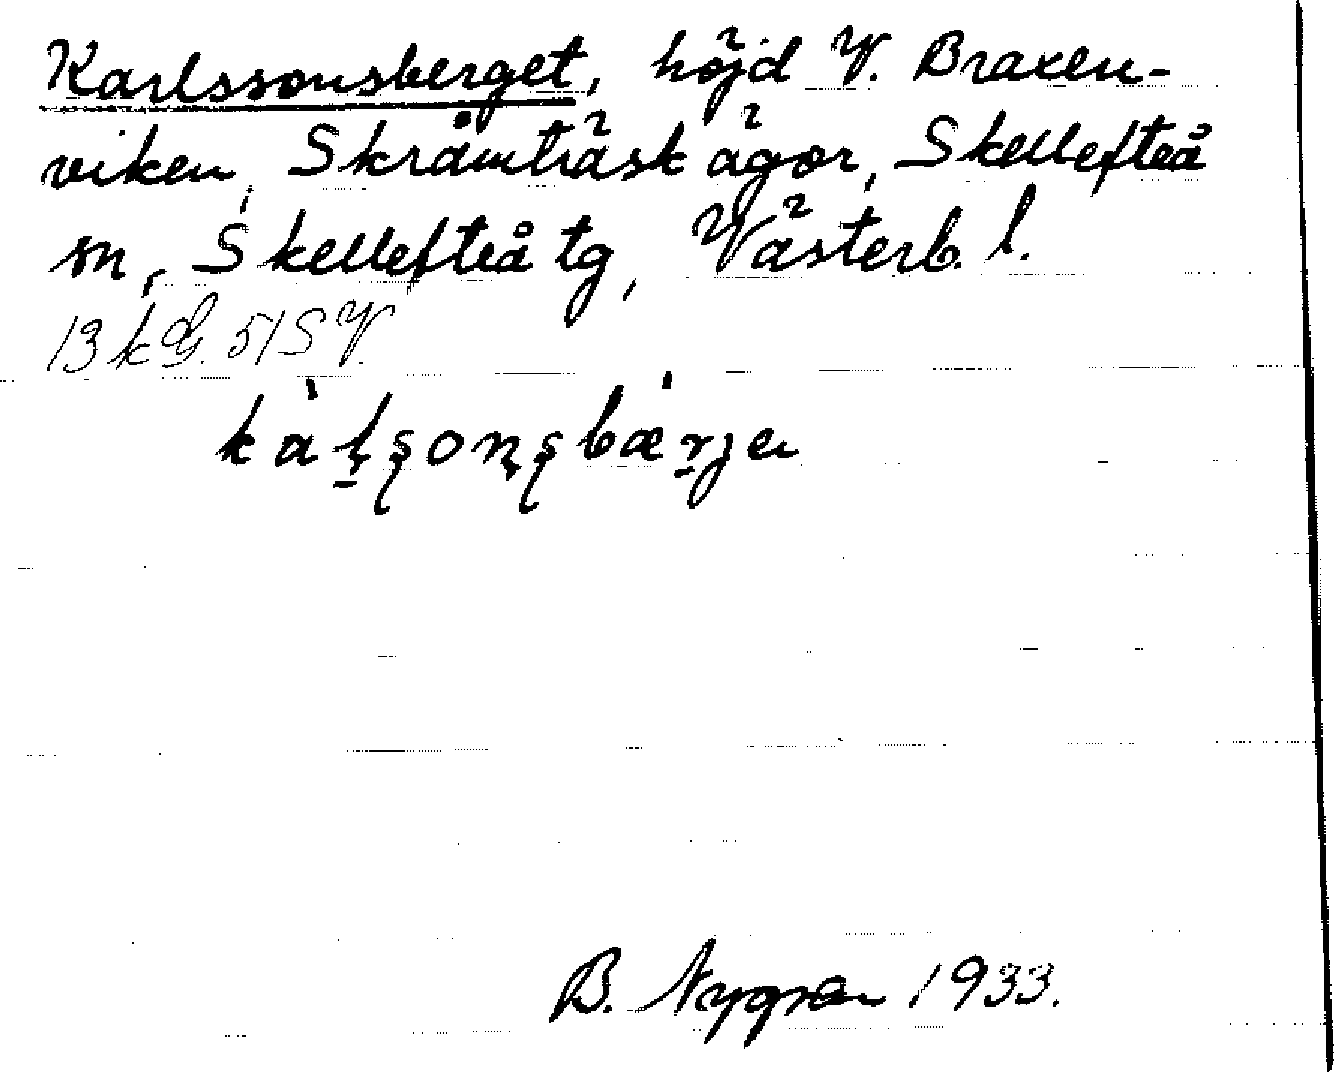 Karlssonsberget, höjd V. Braxen-
viken, Skråmträsk ägor, Skellefteå
sn, Skellefteå tg, Västerb. l.
13 k G. 51 SV
kàḷṣoṇṣbæ̀ṛjen
B. Nygren 1933.